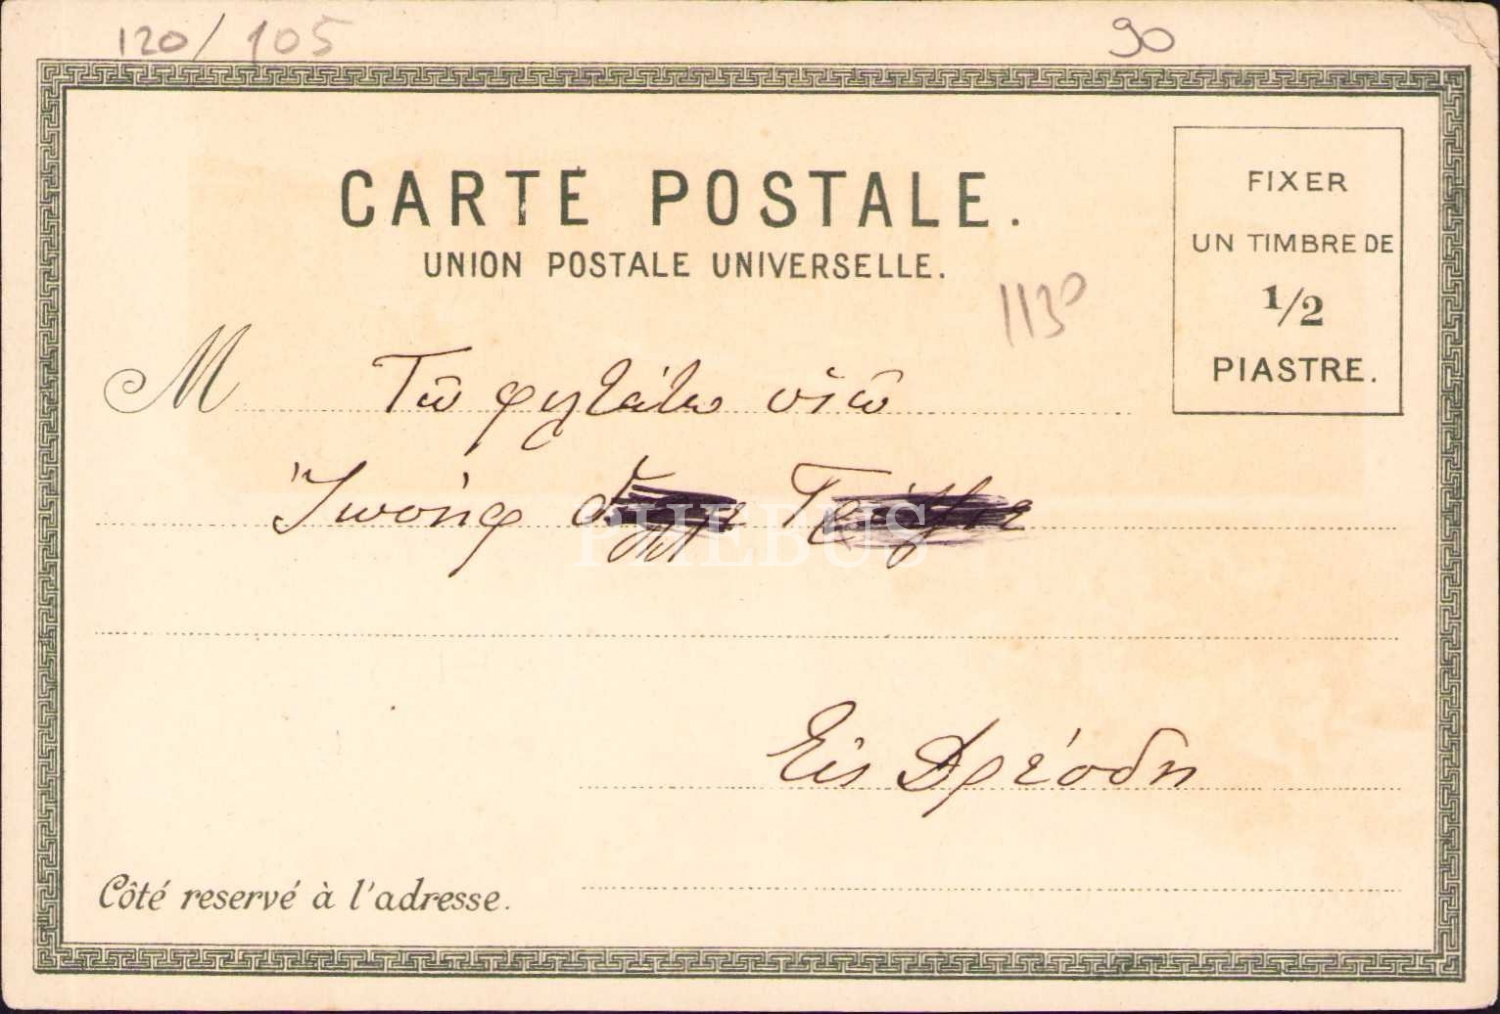 120/105
90
CARTE POSTALE.
UNION POSTALE UNIVERSELLE.
FIXER
UN TIMBRE DE
1/2
PIASTRE.
1130
M Τῶ φιλτάτω υἱῶ
Ἰωσήφ
PHEBUS
Εἰς Δρέσδη
Côté reservé à l'adresse.